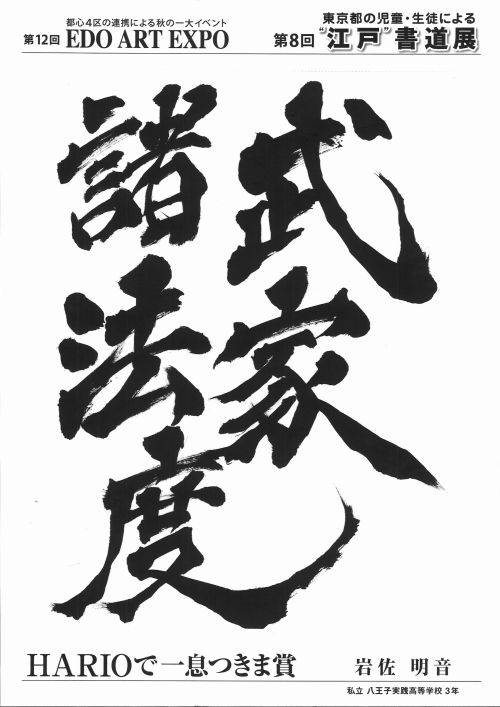 都心4区の連携による秋の一大イベント
第12回 EDO ART EXPO
東京都の児童・生徒による
第8回 “江戸”書道展
武家
諸法度
HARIOで一息つきま賞
岩佐 明音
私立 八王子実践高等学校 3年